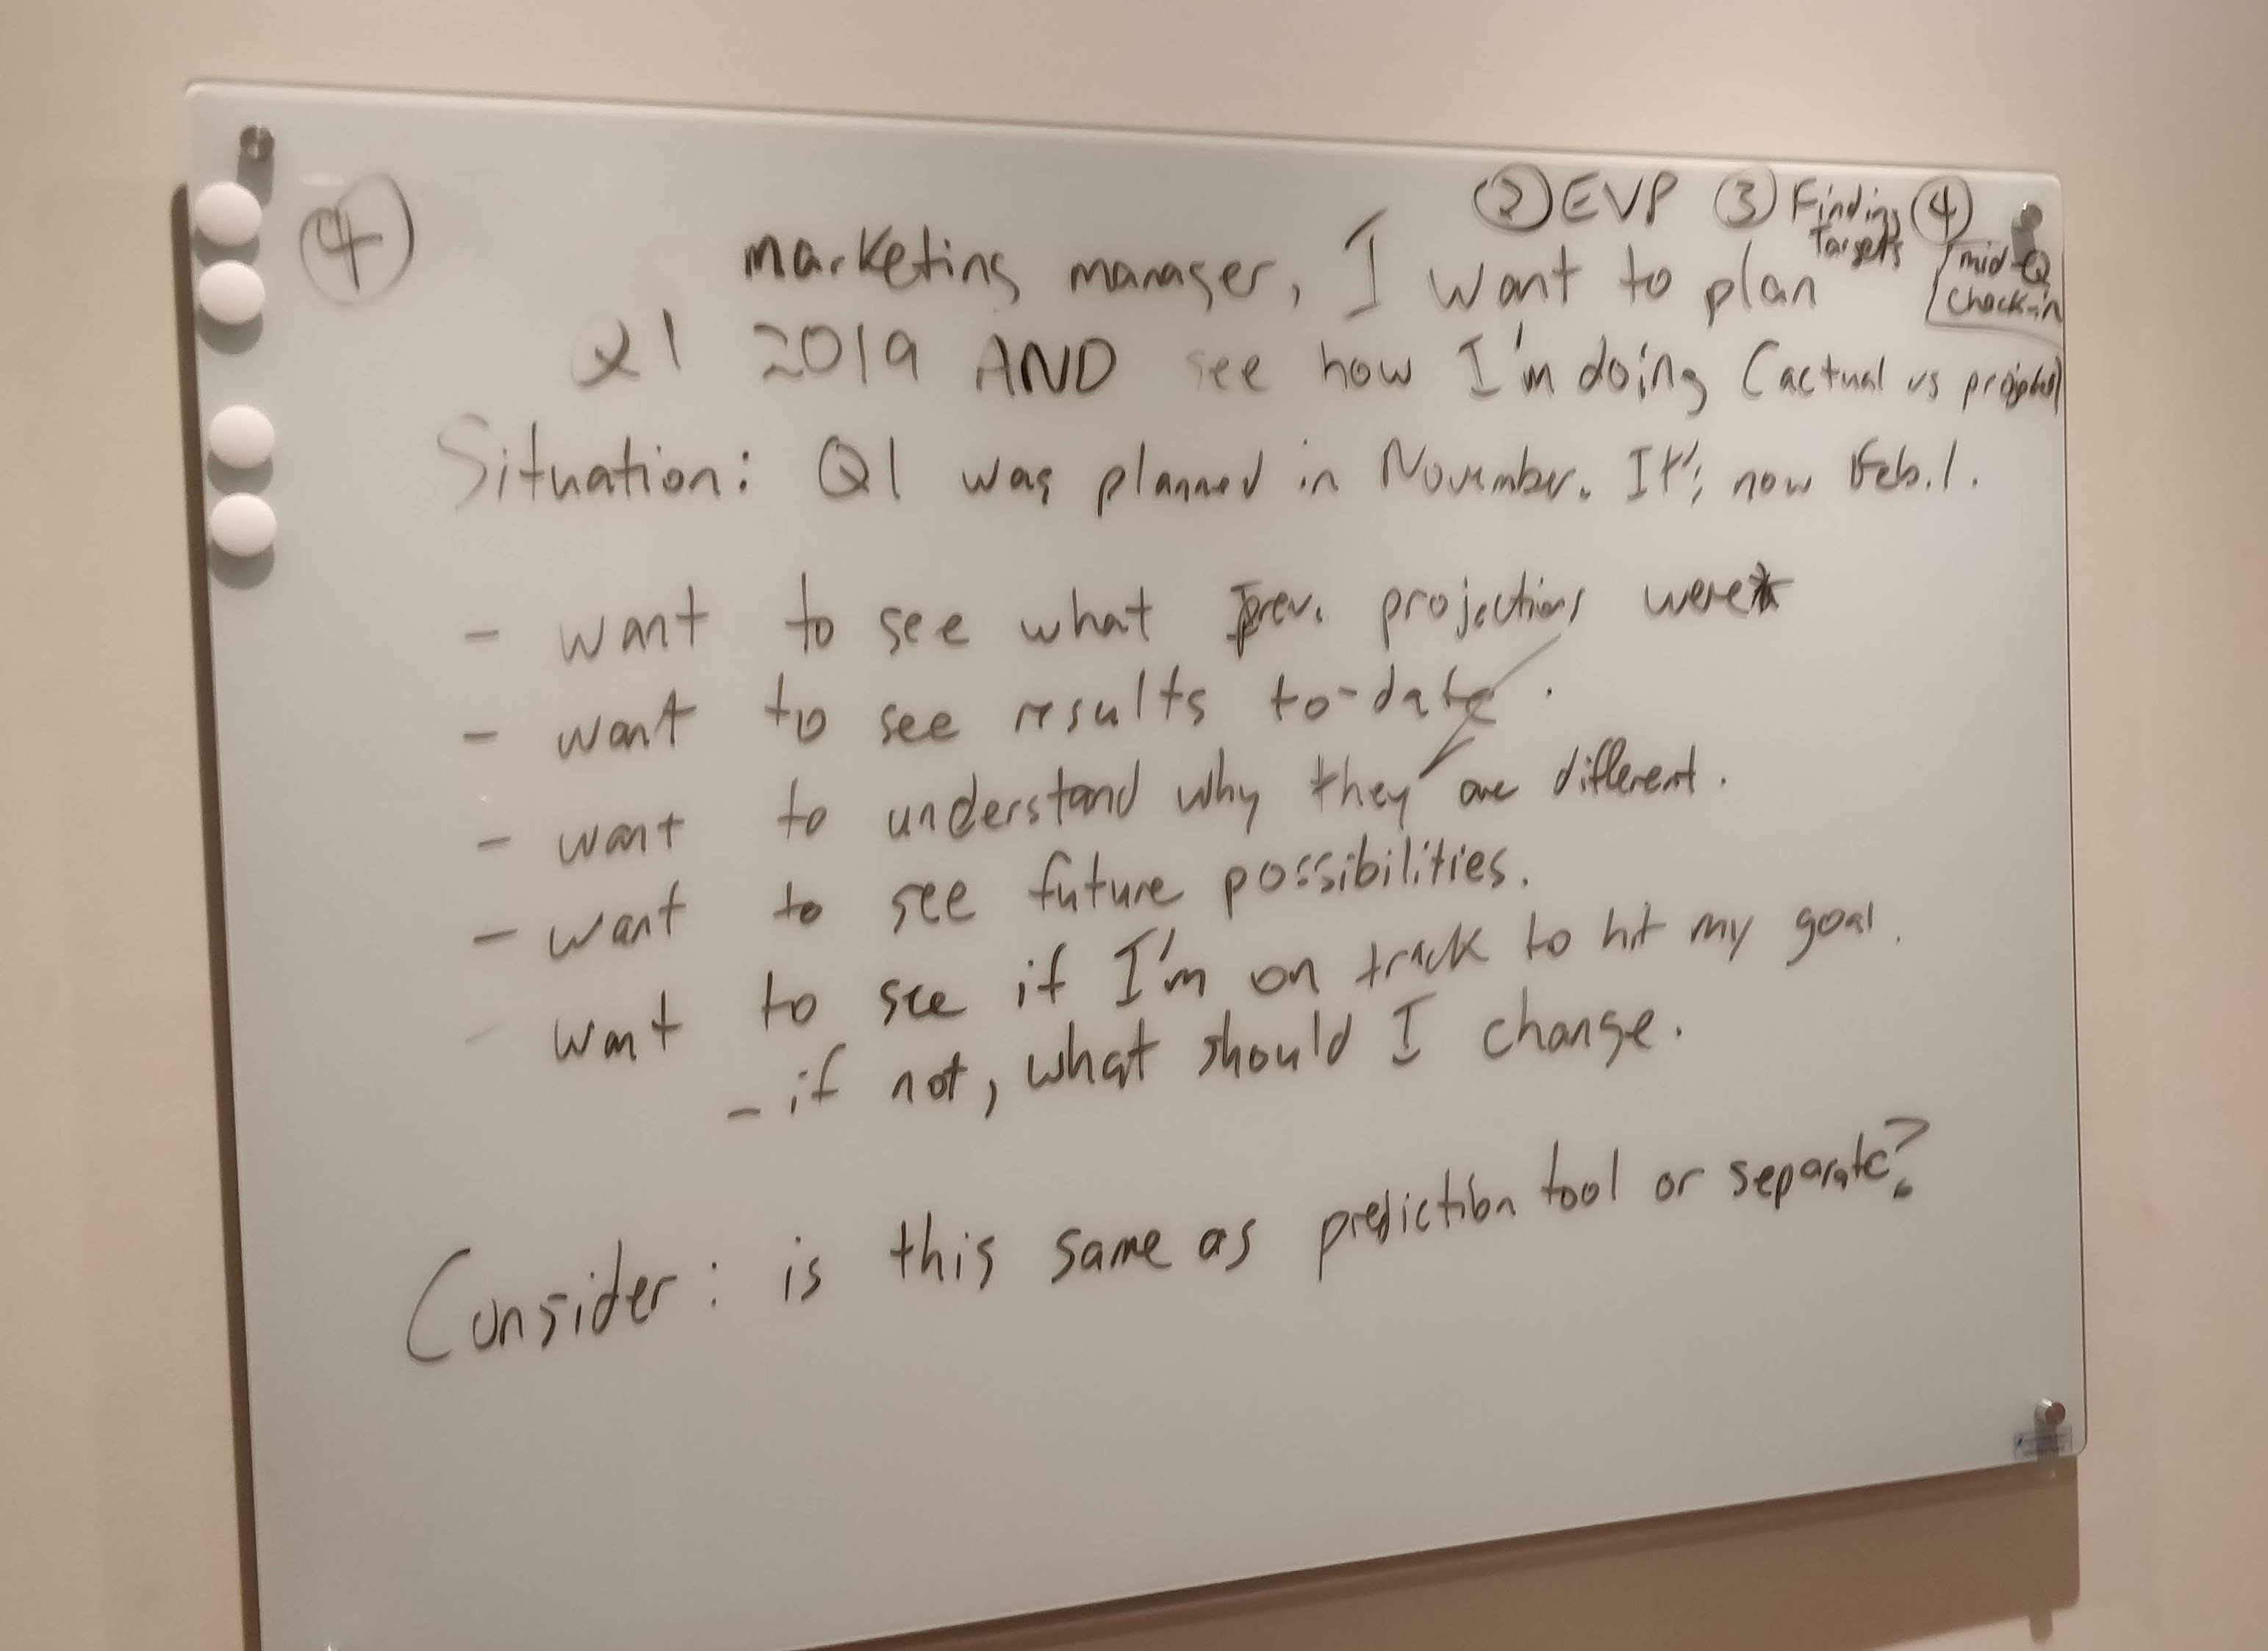 ② EVP ③ Finding Targets ④ mid-Q check-in
④
marketing manager, I want to plan
Q1 2019 AND see how I'm doing (actual vs projected)
Situation: Q1 was planned in November. It's now Feb. 1.
- want to see what prev. projections were*
- want to see results to-date.
- want to understand why they are different.
- want to see future possibilities.
- want to see if I'm on track to hit my goal.
- if not, what should I change.
Consider: is this same as prediction tool or separate?